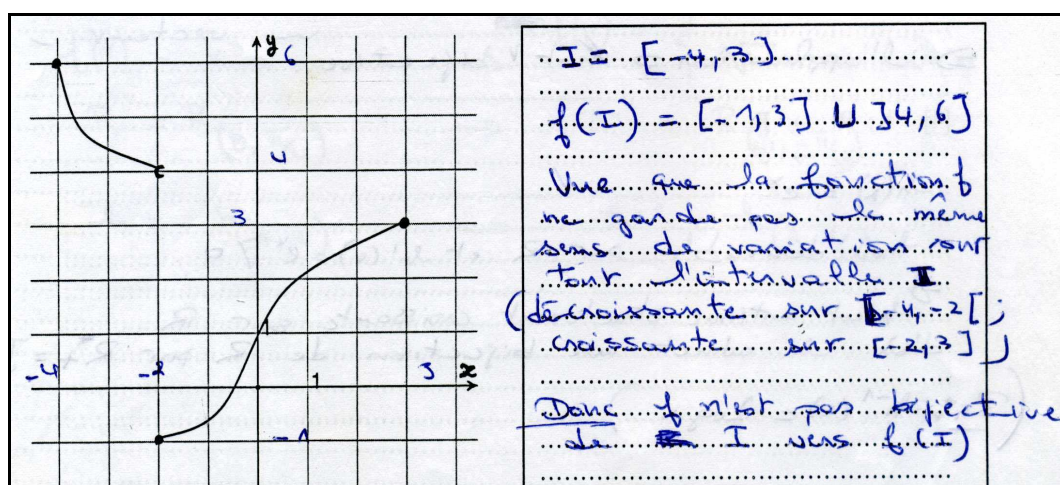 y
6
4
3
1
-4
-2
1
3
x
-1
I = [-4, 3]
f(I) = [-1, 3] ∪ ]4, 6]
Vue que la fonction f
ne garde pas le même
sens de variation sur
tout l'intervalle I
(décroissante sur [-4, -2[ ;
croissante sur [-2, 3] )
Donc f n'est pas bijective
de I vers f(I)